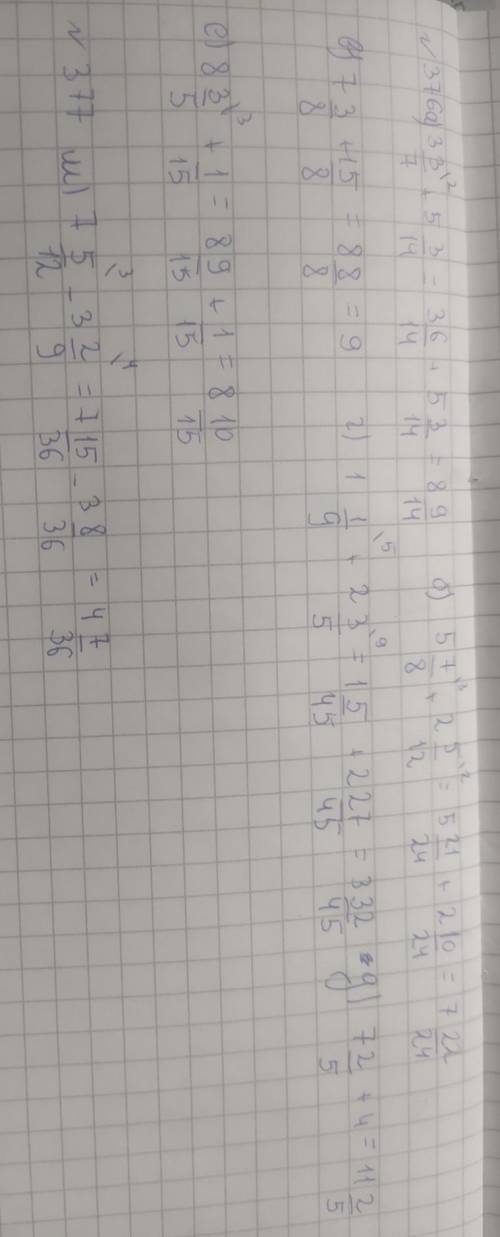 №376 а) 3 3/7 \2 + 5 3/14 = 3 6/14 + 5 3/14 = 8 9/14 б) 5 7/8 \3 + 2 5/12 \2 = 5 21/24 + 2 10/24 = 7 22/24
в) 7 3/8 + 1 5/8 = 8 8/8 = 9 г) 1 1/9 \5 + 2 3/5 \9 = 1 5/45 + 2 27/45 = 3 32/45 д) 7 2/5 + 4 = 11 2/5
е) 8 3/5 \3 + 1/15 = 8 9/15 + 1/15 = 8 10/15
№377 ш) 7 5/12 \3 - 3 2/9 \4 = 7 15/36 - 3 8/36 = 4 7/36